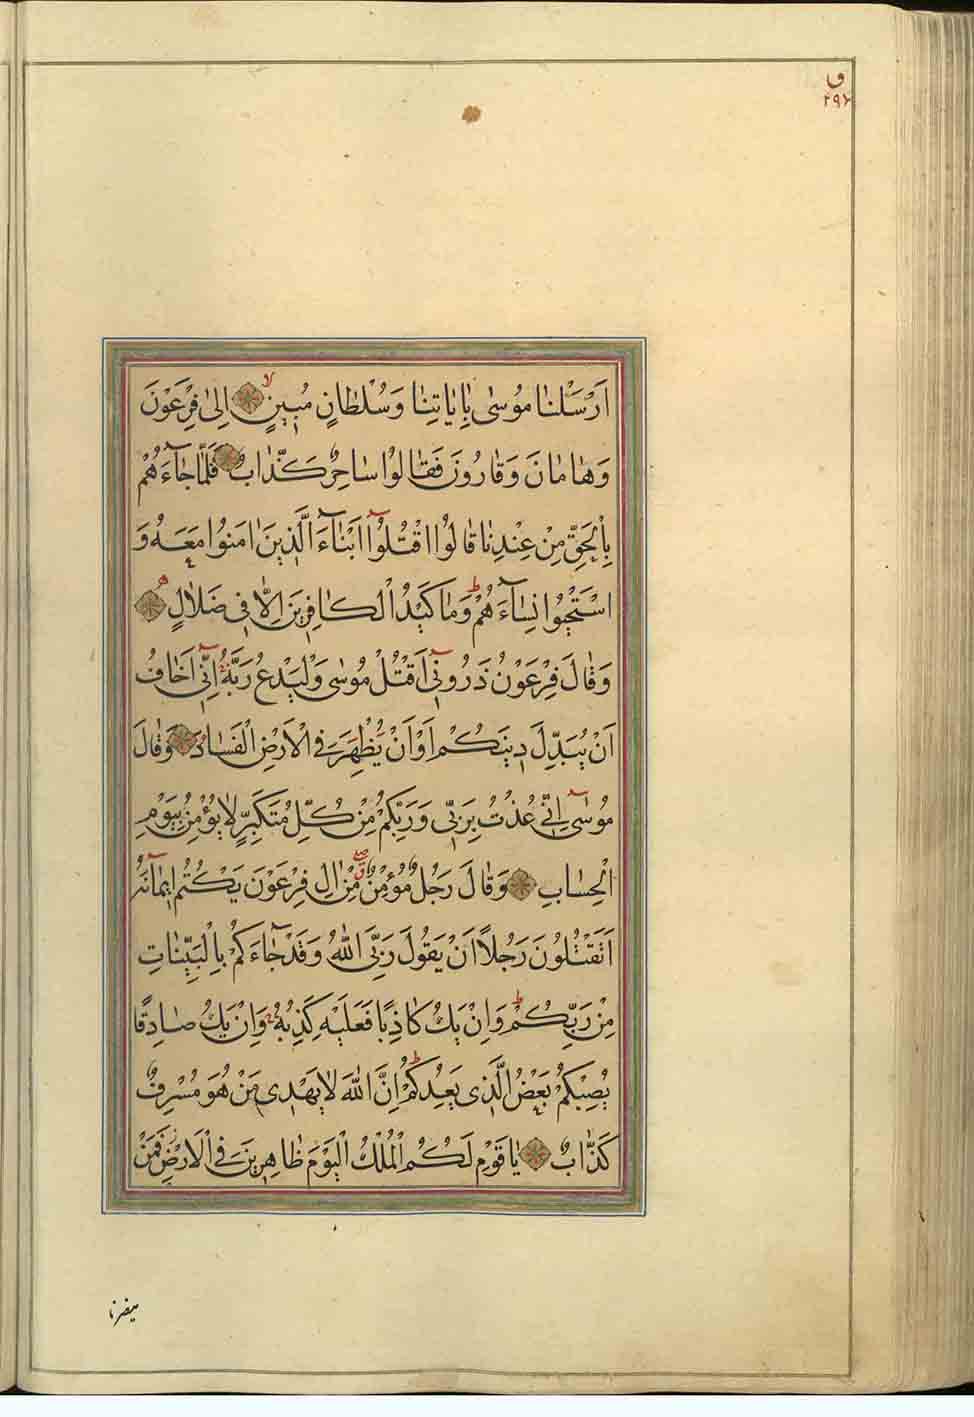 ق
٢٩٦
اَرْسَلْنَا مُوسٰى بِاٰيَاتِنَا وَسُلْطَانٍ مُبِينٍ اِلٰى فِرْعَوْنَ
وَهَامَانَ وَقَارُونَ فَقَالُوا سَاحِرٌ كَذَّابٌ فَلَمَّا جَاءَهُمْ
بِالْحَقِّ مِنْ عِنْدِنَا قَالُوا اقْتُلُوا اَبْنَاءَ الَّذِينَ اٰمَنُوا مَعَهُ وَ
اسْتَحْيُوا نِسَاءَهُمْ وَمَا كَيْدُ الْكَافِرِينَ اِلَّا فِى ضَلَالٍ
وَقَالَ فِرْعَوْنُ ذَرُونِى اَقْتُلْ مُوسٰى وَلْيَدْعُ رَبَّهُ اِنِّى اَخَافُ
اَنْ يُبَدِّلَ دِينَكُمْ اَوْ اَنْ يُظْهِرَ فِى الْاَرْضِ الْفَسَادَ وَقَالَ
مُوسٰى اِنِّى عُذْتُ بِرَبِّى وَرَبِّكُمْ مِنْ كُلِّ مُتَكَبِّرٍ لَا يُؤْمِنُ بِيَوْمِ
الْحِسَابِ وَقَالَ رَجُلٌ مُؤْمِنٌ مِنْ اٰلِ فِرْعَوْنَ يَكْتُمُ اِيمَانَهُ
اَتَقْتُلُونَ رَجُلًا اَنْ يَقُولَ رَبِّىَ اللّٰهُ وَقَدْ جَاءَكُمْ بِالْبَيِّنَاتِ
مِنْ رَبِّكُمْ وَاِنْ يَكُ كَاذِبًا فَعَلَيْهِ كَذِبُهُ وَاِنْ يَكُ صَادِقًا
يُصِبْكُمْ بَعْضُ الَّذِى يَعِدُكُمْ اِنَّ اللّٰهَ لَا يَهْدِى مَنْ هُوَ مُسْرِفٌ
كَذَّابٌ يَا قَوْمِ لَكُمُ الْمُلْكُ الْيَوْمَ ظَاهِرِينَ فِى الْاَرْضِ فَمَنْ
ينصرنا